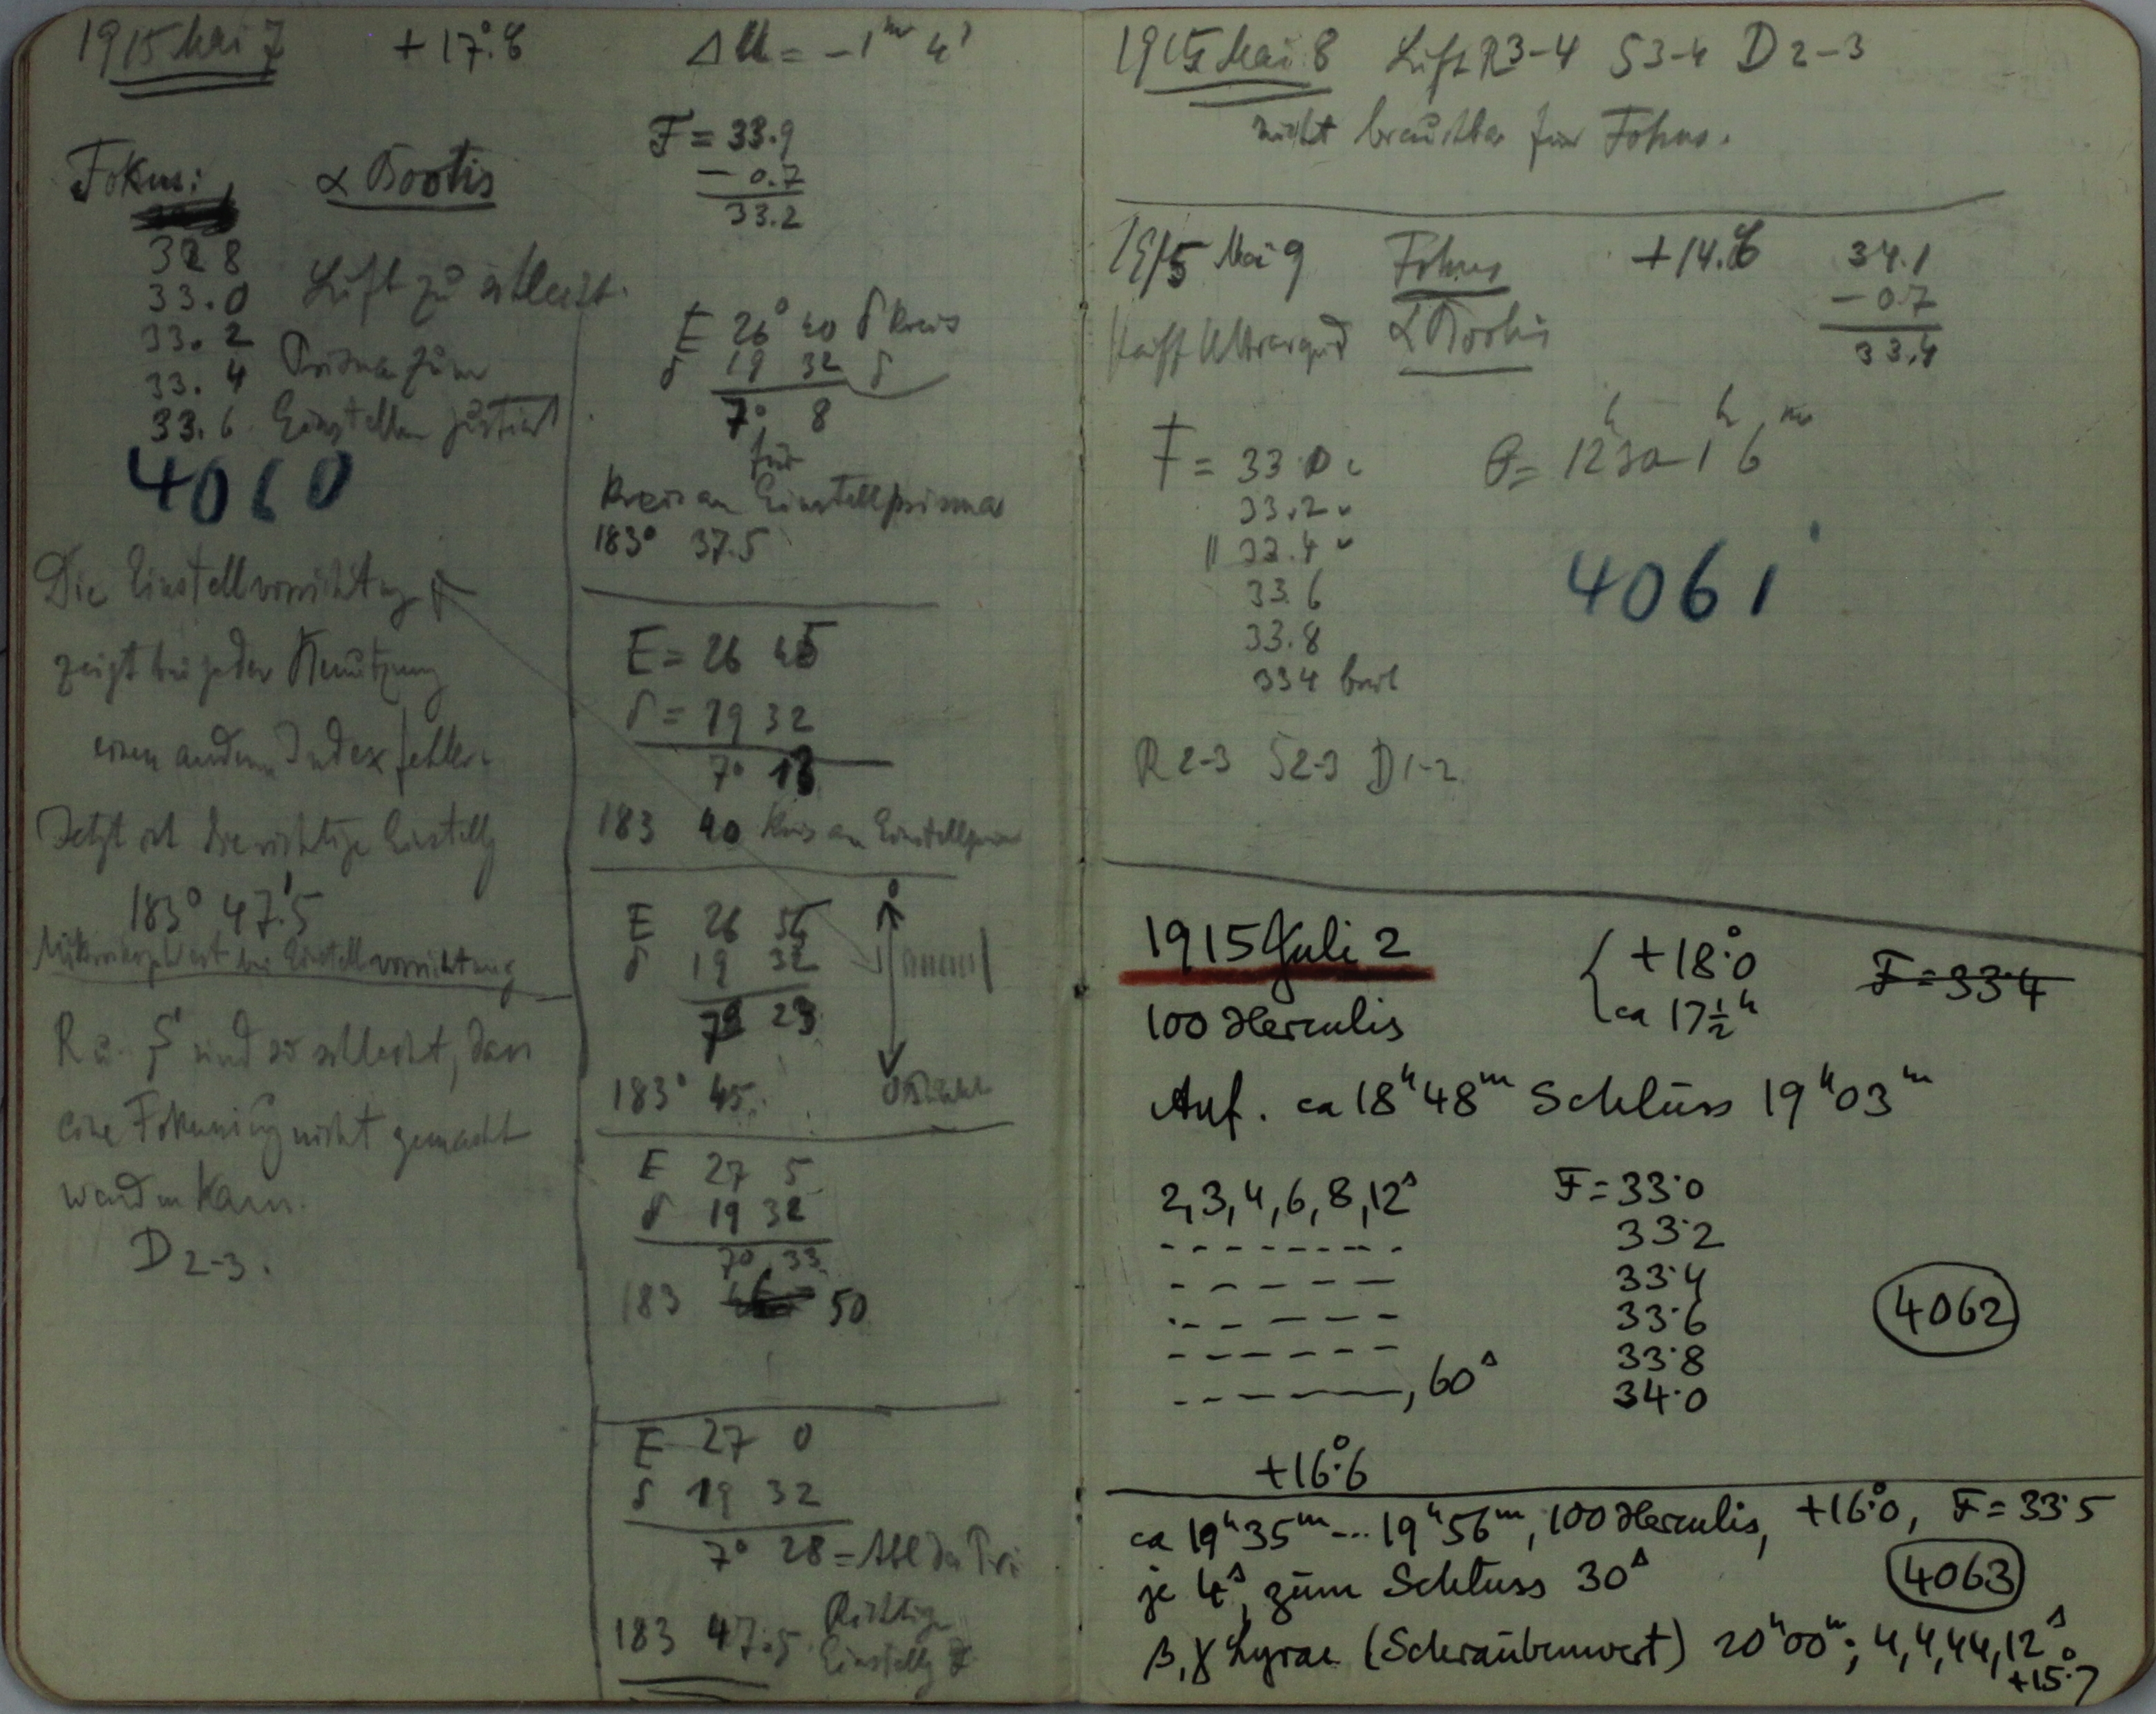 1915 Mai 7 +17°.8
Fokus: α Bootis
32 8
33.0 Luft zu schlecht.
33.2
33.4 Prisma zum
33.6 Einstellen justiert
4060
Die Einstellvorrichtung
zeigt bei jeder Benutzung
einen andern Indexfehler.
Jetzt ist die richtige Einstellg
183° 47'.5
Mikroskop Wert bei Einstellvorrichtung
R u. S sind so schlecht, dass
eine Fokussierung nicht gemacht
werden kann.
D 2-3.
ΔU = -1ᵐ 4ˢ
F = 33.9
- 0.7
33.2
E 26° 40 δ Kreis
δ 19 32 δ
7° 8
für
Kreis am Einstellprisma
183° 37.5
E = 26 45
δ = 19 32
7° 13
183 40 Kreis am Einstellprisma
E 26 55
δ 19 32
7° 23
183° 45
E 27 5
δ 19 32
7° 33
183 50
E 27 0
δ 19 32
7° 28 =
183 47.5 Richtige
Einstellg
1915 Mai 8 Luft R3-4 S3-4 D2-3
nicht brauchbar für Fokus.
1915 Mai 9 Fokus +14.8 34.1
- 0.7
33.4
α Bootis
F = 33 0 θ = 12ʰ 30 - 1ʰ 6ᵐ
33.2
|| 33.4
33.6
33.8
334
4061
R 2-3 S 2-3 D 1-2
1915 Juli 2 { +18°.0 F = 33.4
100 Herculis ca 17½ʰ
Anf. ca 18ʰ48ᵐ Schluss 19ʰ03ᵐ
2,3,4,6,8,12ˢ F = 33.0
- - - - - - - 33.2
- - - - - 33.4
- - - - - - 33.6
- - - - - - 33.8
- - - - —, 60ˢ 34.0
4062
+16°.6
ca 19ʰ35ᵐ...19ʰ56ᵐ, 100 Herculis, +16°.0, F = 33.5
je 4ˢ, zum Schluss 30ˢ 4063
β, γ Lyrae (Schraubenwert) 20ʰ00ᵐ; 4,4,44,12ˢ
+15°.7